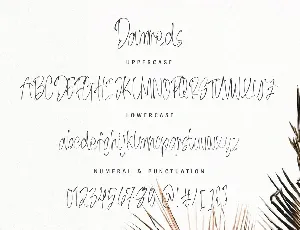 Damreds
UPPERCASE
ABCDEFGHIJKLMNOPQRSTUVWXYZ
LOWERCASE
abcdefghijklmnopqrstuvwxyz
NUMERAL & PUNCTUATION